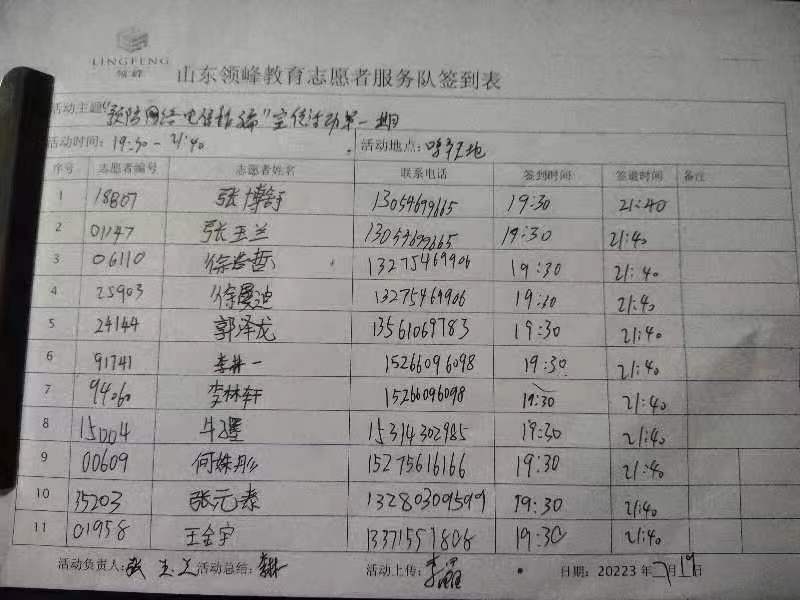 LINGFENG
领峰
山东领峰教育志愿者服务队签到表
活动主题："预防网络电信诈骗"宣传活动第一期
活动时间：19:30-21:40 活动地点：
序号 志愿者编号 志愿者姓名 联系电话 签到时间 签退时间 备注
1 18807 张博舒 13054699665 19:30 21:40
2 01147 张玉兰 13054699665 19:30 21:40
3 06110 13275469906 19:30 21:40
4 25903 徐曼迪 13275469906 19:30 21:40
5 24144 郭泽龙 13561069783 19:30 21:40
6 91741 李井一 15266096098 19:30 21:40
7 94060 李林轩 15266096098 19:30 21:40
8 15004 牛墨 15314302985 19:30 21:40
9 00609 何姝彤 15275616166 19:30 21:40
10 35203 张元泰 13280309599 19:30 21:40
11 01958 王金宇 13371557808 19:30 21:40
活动负责人：张玉兰 活动总结： 活动上传： 日期：20223年2月19日